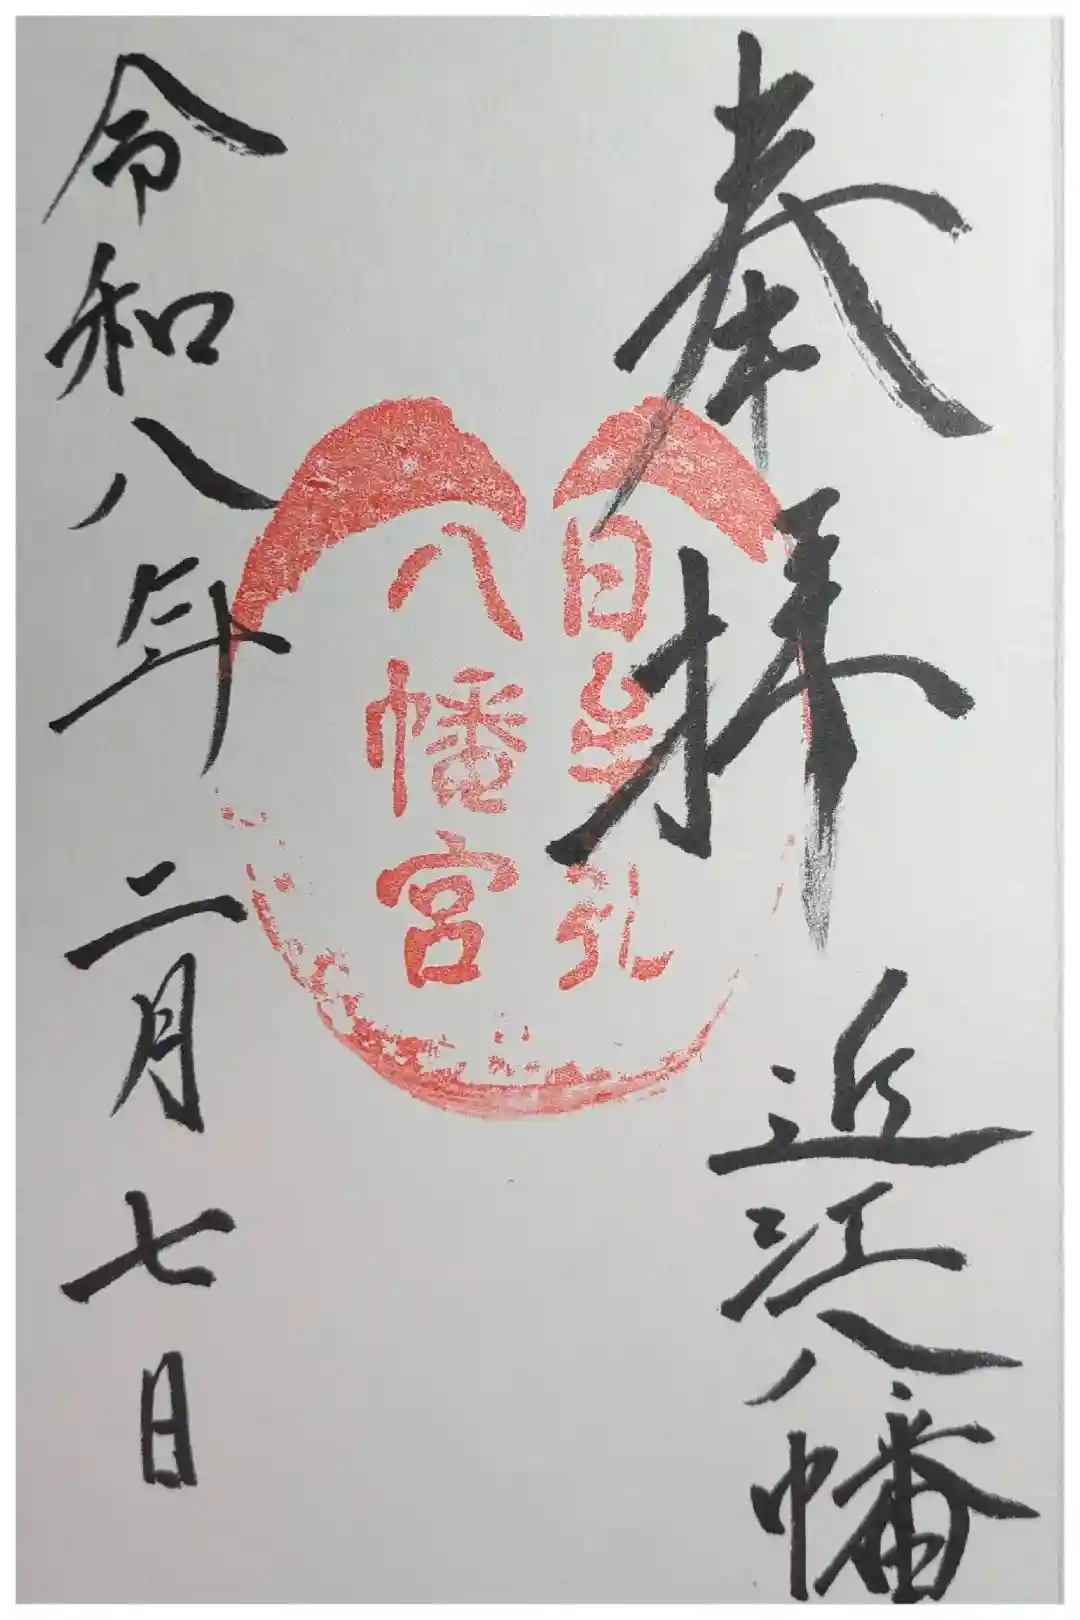 奉拝
近江八幡
日牟礼
八幡宮
令和八年二月七日